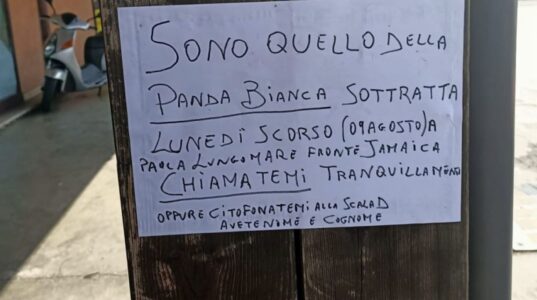 SONO QUELLO DELLA
PANDA BIANCA SOTTRATTA
LUNEDÌ SCORSO (09AGOSTO) A
PAOLA LUNGOMARE FRONTE JAMAICA
CHIAMATEMI TRANQUILLAMENO
OPPURE CITOFONATEMI ALLA SCALA D
AVETE NOME E COGNOME